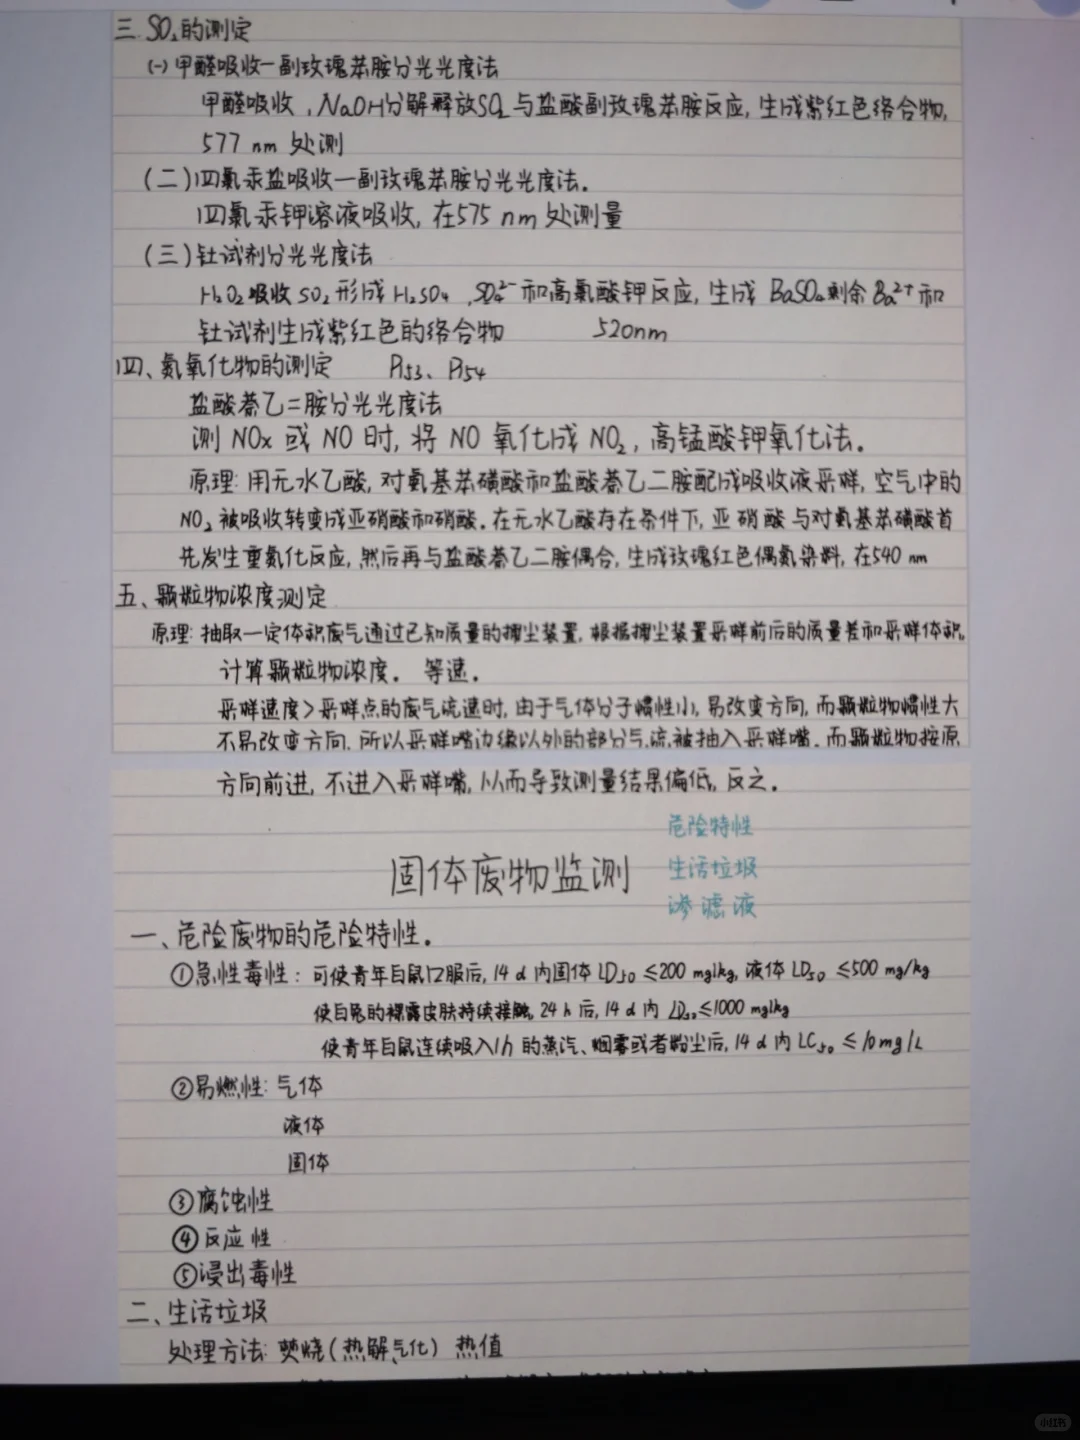 三.SO₂的测定
(一)甲醛吸收—副玫瑰苯胺分光光度法
甲醛吸收,NaOH分解释放SO₂与盐酸副玫瑰苯胺反应,生成紫红色络合物,
577 nm 处测
(二)四氯汞盐吸收—副玫瑰苯胺分光光度法.
四氯汞钾溶液吸收,在575 nm 处测量
(三)钍试剂分光光度法
H₂O₂吸收SO₂形成H₂SO₄,SO₄²⁻和高氯酸钾反应,生成 BaSO₄剩余Ba²⁺和
钍试剂生成紫红色的络合物 520nm
四、氮氧化物的测定 P₁₅₃、P₁₅₄
盐酸萘乙二胺分光光度法
测 NOx 或 NO 时,将 NO 氧化成 NO₂,高锰酸钾氧化法.
原理:用无水乙酸,对氨基苯磺酸和盐酸萘乙二胺配成吸收液采样,空气中的
NO₂被吸收转变成亚硝酸和硝酸.在无水乙酸存在条件下,亚硝酸与对氨基苯磺酸首
先发生重氮化反应,然后再与盐酸萘乙二胺偶合,生成玫瑰红色偶氮染料,在540 nm
五、颗粒物浓度测定
原理:抽取一定体积废气通过已知质量的捕尘装置,根据捕尘装置采样前后的质量差和采样体积,
计算颗粒物浓度。 等速.
采样速度>采样点的废气流速时,由于气体分子惯性小,易改变方向,而颗粒物惯性大
不易改变方向.所以采样嘴边缘以外的部分气流被抽入采样嘴.而颗粒物按原
方向前进,不进入采样嘴,从而导致测量结果偏低,反之.
危险特性
固体废物监测
生活垃圾
渗滤液
一、危险废物的危险特性.
①急性毒性:可使青年白鼠口服后,14 d 内固体 LD₅₀ ≤200 mg/kg,液体 LD₅₀ ≤500 mg/kg
使白兔的裸露皮肤持续接触 24 h 后,14 d 内 LD₅₀≤1000 mg/kg
使青年白鼠连续吸入1h 的蒸汽、烟雾或者粉尘后,14 d 内 LC₅₀ ≤10mg/L
②易燃性:气体
液体
固体
③腐蚀性
④反应性
⑤浸出毒性
二、生活垃圾
处理方法:焚烧(热解气化) 热值
小红书